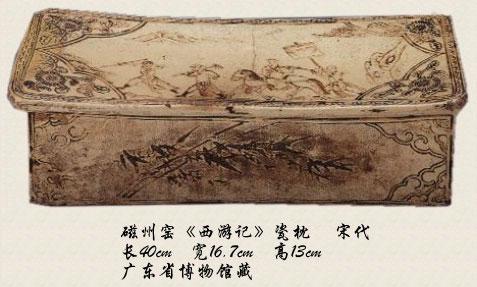 磁州窑《西游记》瓷枕 宋代
长40cm 宽16.7cm 高13cm
广东省博物馆藏